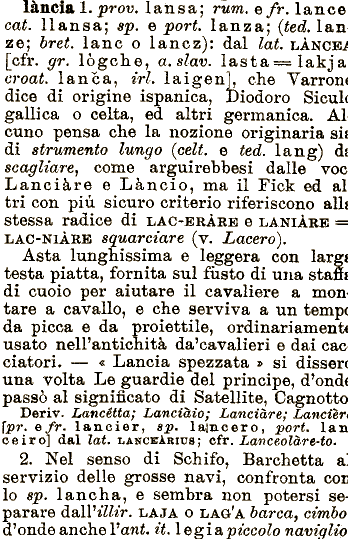 lància 1. prov. lansa; rum. e fr. lance
cat. llansa; sp. e port. lanza; (ted. lan-
ze; bret. lanc o lancz): dal lat. LÀNCEA
[cfr. gr. lògche, a. slav. lasta = lakja
croat. lanča, irl. laigen], che Varrone
dice di origine ispanica, Diodoro Siculo
gallica o celta, ed altri germanica. Al-
cuno pensa che la nozione originaria sia
di strumento lungo (celt. e ted. lang) da
scagliare, come arguirebbesi dalle voc
Lanciàre e Làncio, ma il Fick ed al-
tri con più sicuro criterio riferiscono alla
stessa radice di LAC-ERÀRE e LANIÀRE =
LAC-NIÀRE squarciare (v. Lacero).
Asta lunghissima e leggera con larga
testa piatta, fornita sul fusto di una staffa
di cuoio per aiutare il cavaliere a mon-
tare a cavallo, e che serviva a un tempo
da picca e da proiettile, ordinariamente
usato nell'antichità da'cavalieri e dai cac-
ciatori. — « Lancia spezzata » si dissero
una volta Le guardie del principe, d'onde
passò al significato di Satellite, Cagnotto
Deriv. Lancétta; Lanciàio; Lanciàre; Lancière
[pr. e fr. lancier, sp. lancero, port. lan
ceiro] dal lat. LANCEÀRIUS; cfr. Lanceolàre-to.
2. Nel senso di Schifo, Barchetta al
servizio delle grosse navi, confronta con
lo sp. lancha, e sembra non potersi se-
parare dall'illir. LAJA o LAG'A barca, cimbo
d'onde anche l'ant. it. legia piccolo naviglio